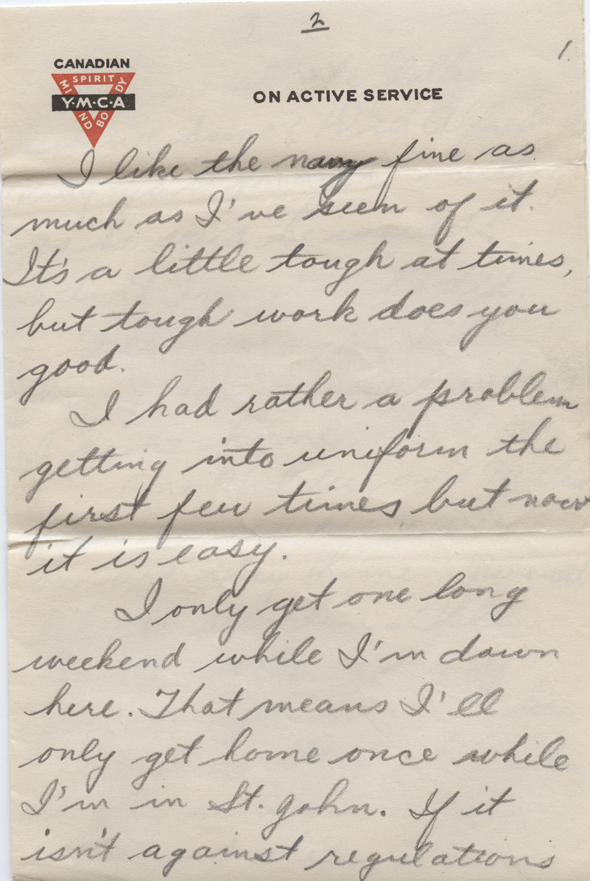 2
1.
CANADIAN
SPIRIT
MIND
BODY
Y·M·C·A
ON ACTIVE SERVICE
I like the navy fine as
much as I've seen of it.
It's a little tough at times,
but tough work does you
good.
I had rather a problem
getting into uniform the
first few times but now
it is easy.
I only get one long
weekend while I'm down
here. That means I'll
only get home once while
I'm in St. John. If it
isn't against regulations